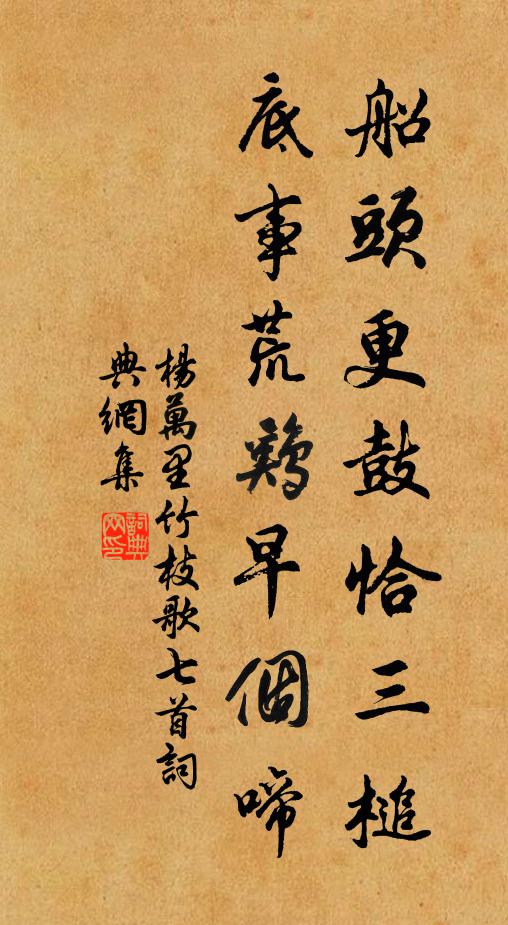 船頭更鼓恰三槌
底事荒鷄早個啼
楊萬里竹枝歌七首詞
典網集
詞典
网印